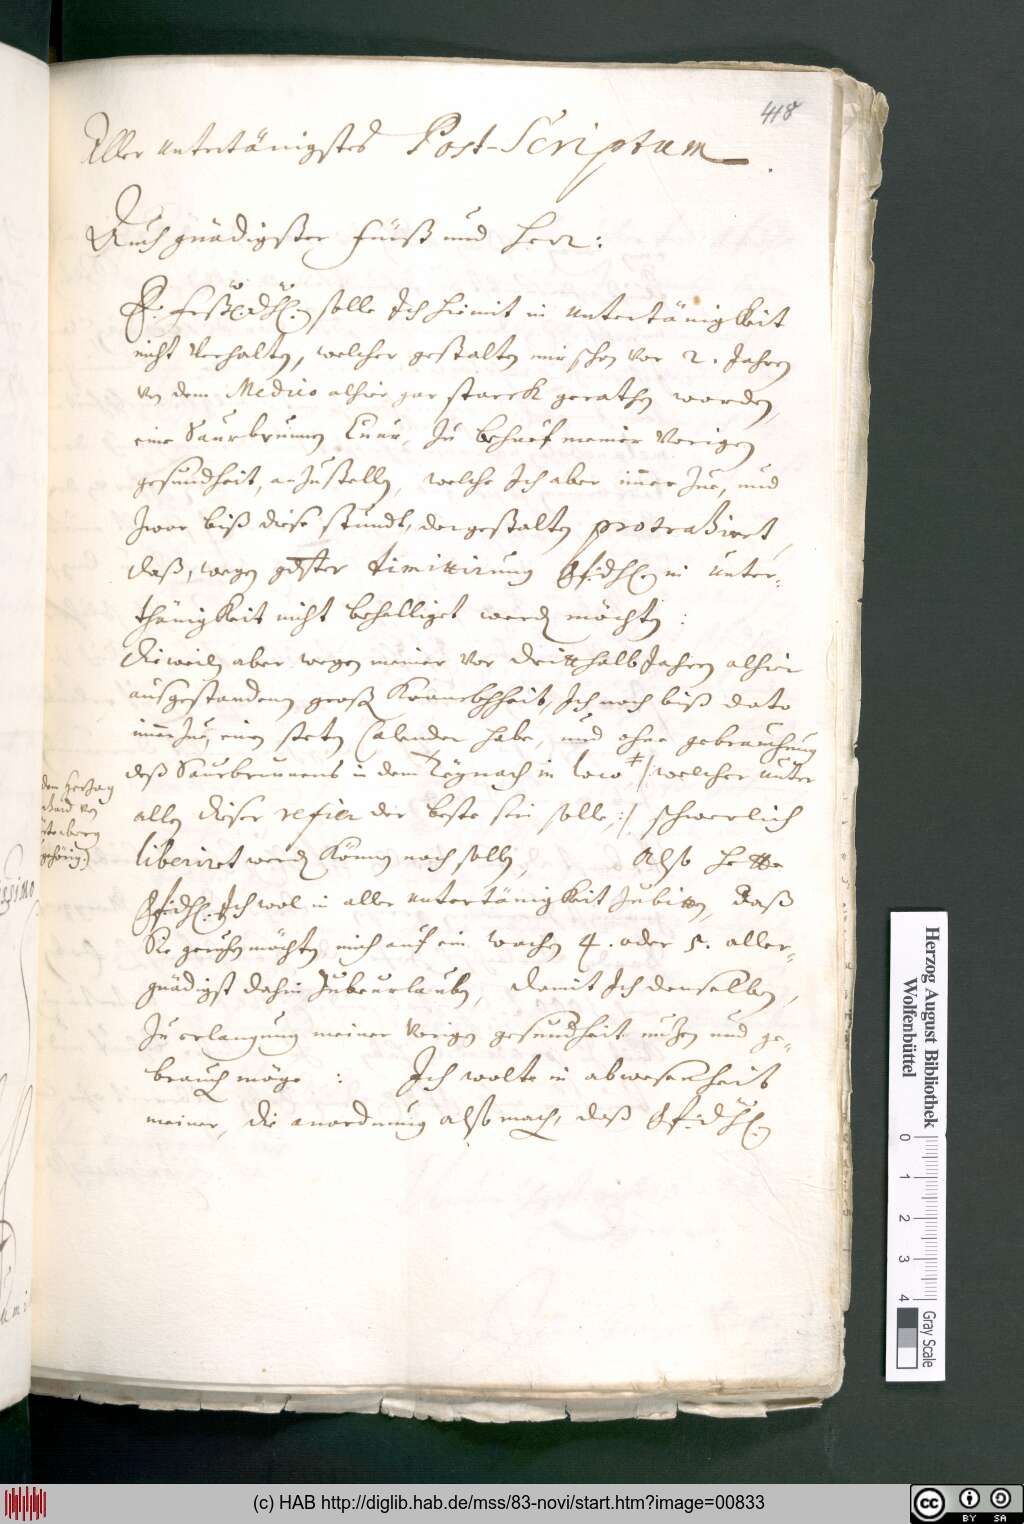 418
Aller Untertänigstes Post-Scriptum
Auch gnädigster Fürst und Herr:
solle Ich hiemit in Untertänigkeit
nicht Verhalten, welcher gestalten mir schon vor 2. Jahren
von dem Medico alhier gar starck gerathen worden,
eine Saurbrunnen Cuur, Zu behuef meiner Vorigen
gesundheit, anZustellen, welche Ich aber immer Zue, und
Zwar biß diese stundt, dergestalten protrahiret,
daß, wegen timittirung in Unter-
thänigkeit nicht behelliget werden möchten:
Dieweiln aber wegen meiner vor dritthalb Jahren alhier
ausgestandenen große Kranckhheit, Ich noch biß dato
immer Zue, einen steten Calender habe, und ohne gebrauchung
deß Saurbrunnens in dem in loco /: welcher unter
allen dieser refier der beste sein solle, :/ schwerlich
liberiret werden können noch sollen, Also hette
Ich wol in aller Untertänigkeit Zubitten, daß
Sie geruhen möchten, mich auf ein wochen 4. oder 5. aller-
gnädigst dahin Zubeurlauben, damit Ich denselben,
Zu erlangung meiner Vorigen gesundheit nutzen und ge-
brauchen möge : Ich wolte in abwesenheit
meiner, die anordnung also machen, daß
dem Herzog
von
gehörig:)
Herzog August Bibliothek
Wolfenbüttel
0 1 2 3 4
Gray Scale
(c) HAB http://diglib.hab.de/mss/83-novi/start.htm?image=00833
cc BY SA